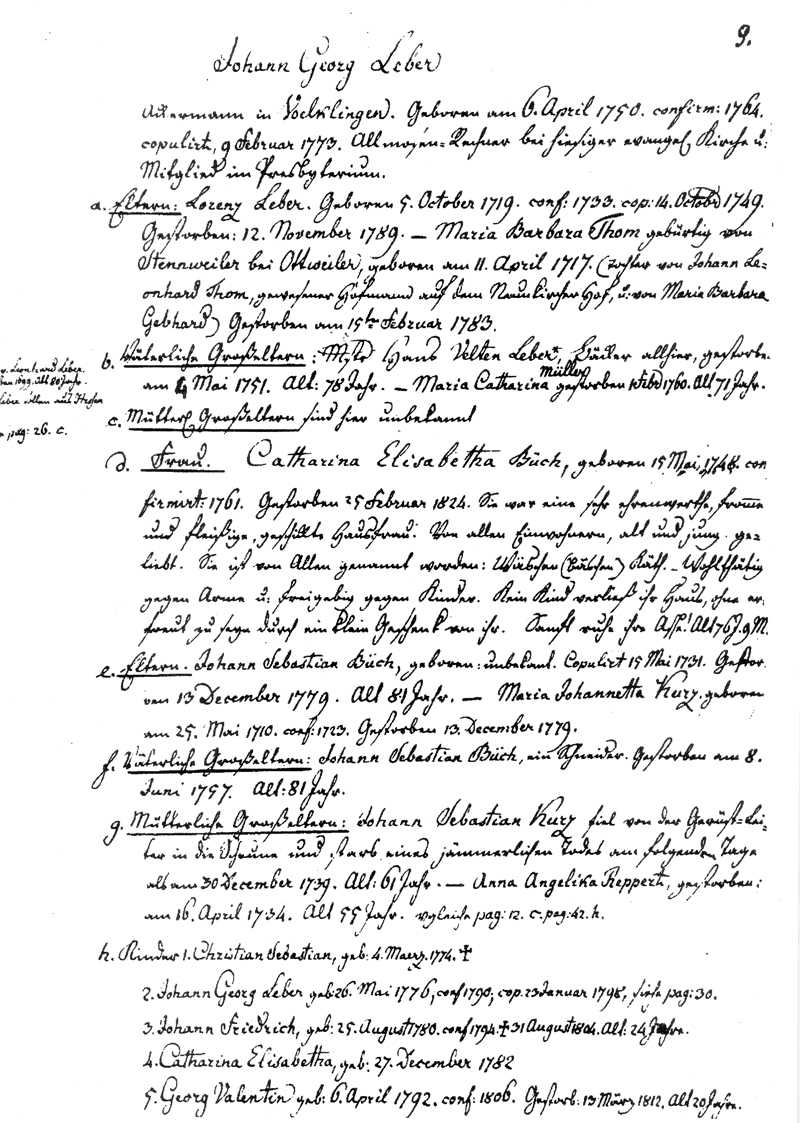 9.
Johann Georg Leber
Ackermann in Voelklingen. Geboren am 6. April 1750. confirm: 1764.
copulirt, 9 Februar 1773. Allmosen-Rechner bei hiesiger evangel. Kirche u:
Mitglied im Presbyterium.
a. Eltern: Lorenz Leber. Geboren 5. October 1719. conf: 1733. cop: 14. Octobr 1749.
Gestorben: 12. November 1789. — Maria Barbara Thom gebürtig von
Stennweiler bei Ottweiler, geboren am 11. April 1717. (Tochter von Johann Le-
onhard Thom, gewesener Hofmann auf dem Neunkircher Hof, u: von Maria Barbara
Gebhard) Gestorben am 15ten Februar 1783.
b. Väterliche Großeltern: Mstr Hans Velten Leber, allhier, gestorbe.
am 4 Mai 1751. Alt: 78 Jahr. — Maria Catharina Müller gestorben 1760. Alt 71 Jahr.
Leber.
Alt 80 Jahr.
pag: 26. c.
c. Mütterl Großeltern sind hier unbekannt
d. Frau. Catharina Elisabetha Büch, geboren 15 Mai, 1748. con
firmirt: 1761. Gestorben 25 Februar 1824. Sie war eine sehr ehrenwerthe, fromme
und fleißige, geschickte Hausfrau. Von allen Einwohnern, alt und jung ge-
liebt. Sie ist von Allen genannt worden: Wäschen (Bäschen) Käth. – Wohlthätig
gegen Arme u: freigebig gegen Kinder. Kein Kind verließ ihr Haus, ohne er-
freut zu seyn durch ein klein Geschenk von ihr. Sanft ruhe ihre Asche! Alt 76 J. 9 M.
e. Eltern. Johann Sebastian Büch, geboren: unbekant. Copulirt 15 Mai 1731. Gestor
ven 13 December 1779. Alt 81 Jahr. — Maria Johannetta Kurz. geboren
am 25. Mai 1710. conf: 1723. Gestorben 13. December 1779.
f. Väterliche Großeltern: Johann Sebastian Büch, ein Schneider. Gestorben am 8.
Juni 1757. Alt: 81 Jahr.
g. Mütterliche Großeltern: Johann Sebastian Kurz fiel von der Gerüst-Lei-
ter in die Scheune und starb eines jämmerlichen Todes am folgenden Tage
als am 30 December 1739. Alt: 61 Jahr. — Anna Angelika Reppert, gestorben:
am 16. April 1734. Alt 55 Jahr. vgleiche pag: 12. c. pag: 42. h.
h. Kinder 1. Christian Sebastian, geb: 4. Maerz. 1774. †
2. Johann Georg Leber geb: 26. Mai 1776, conf 1790, cop. 23 Januar 1798, siehe pag: 30.
3. Johann Friedrich, geb: 25. August 1780. conf 1794. † 31 August 1804. Alt: 24 Jahre.
4. Catharina Elisabetha, geb: 27. December 1782
5. Georg Valentin geb: 6. April 1792. conf: 1806. Gestorb: 13 März 1812. Alt 20 Jahre.